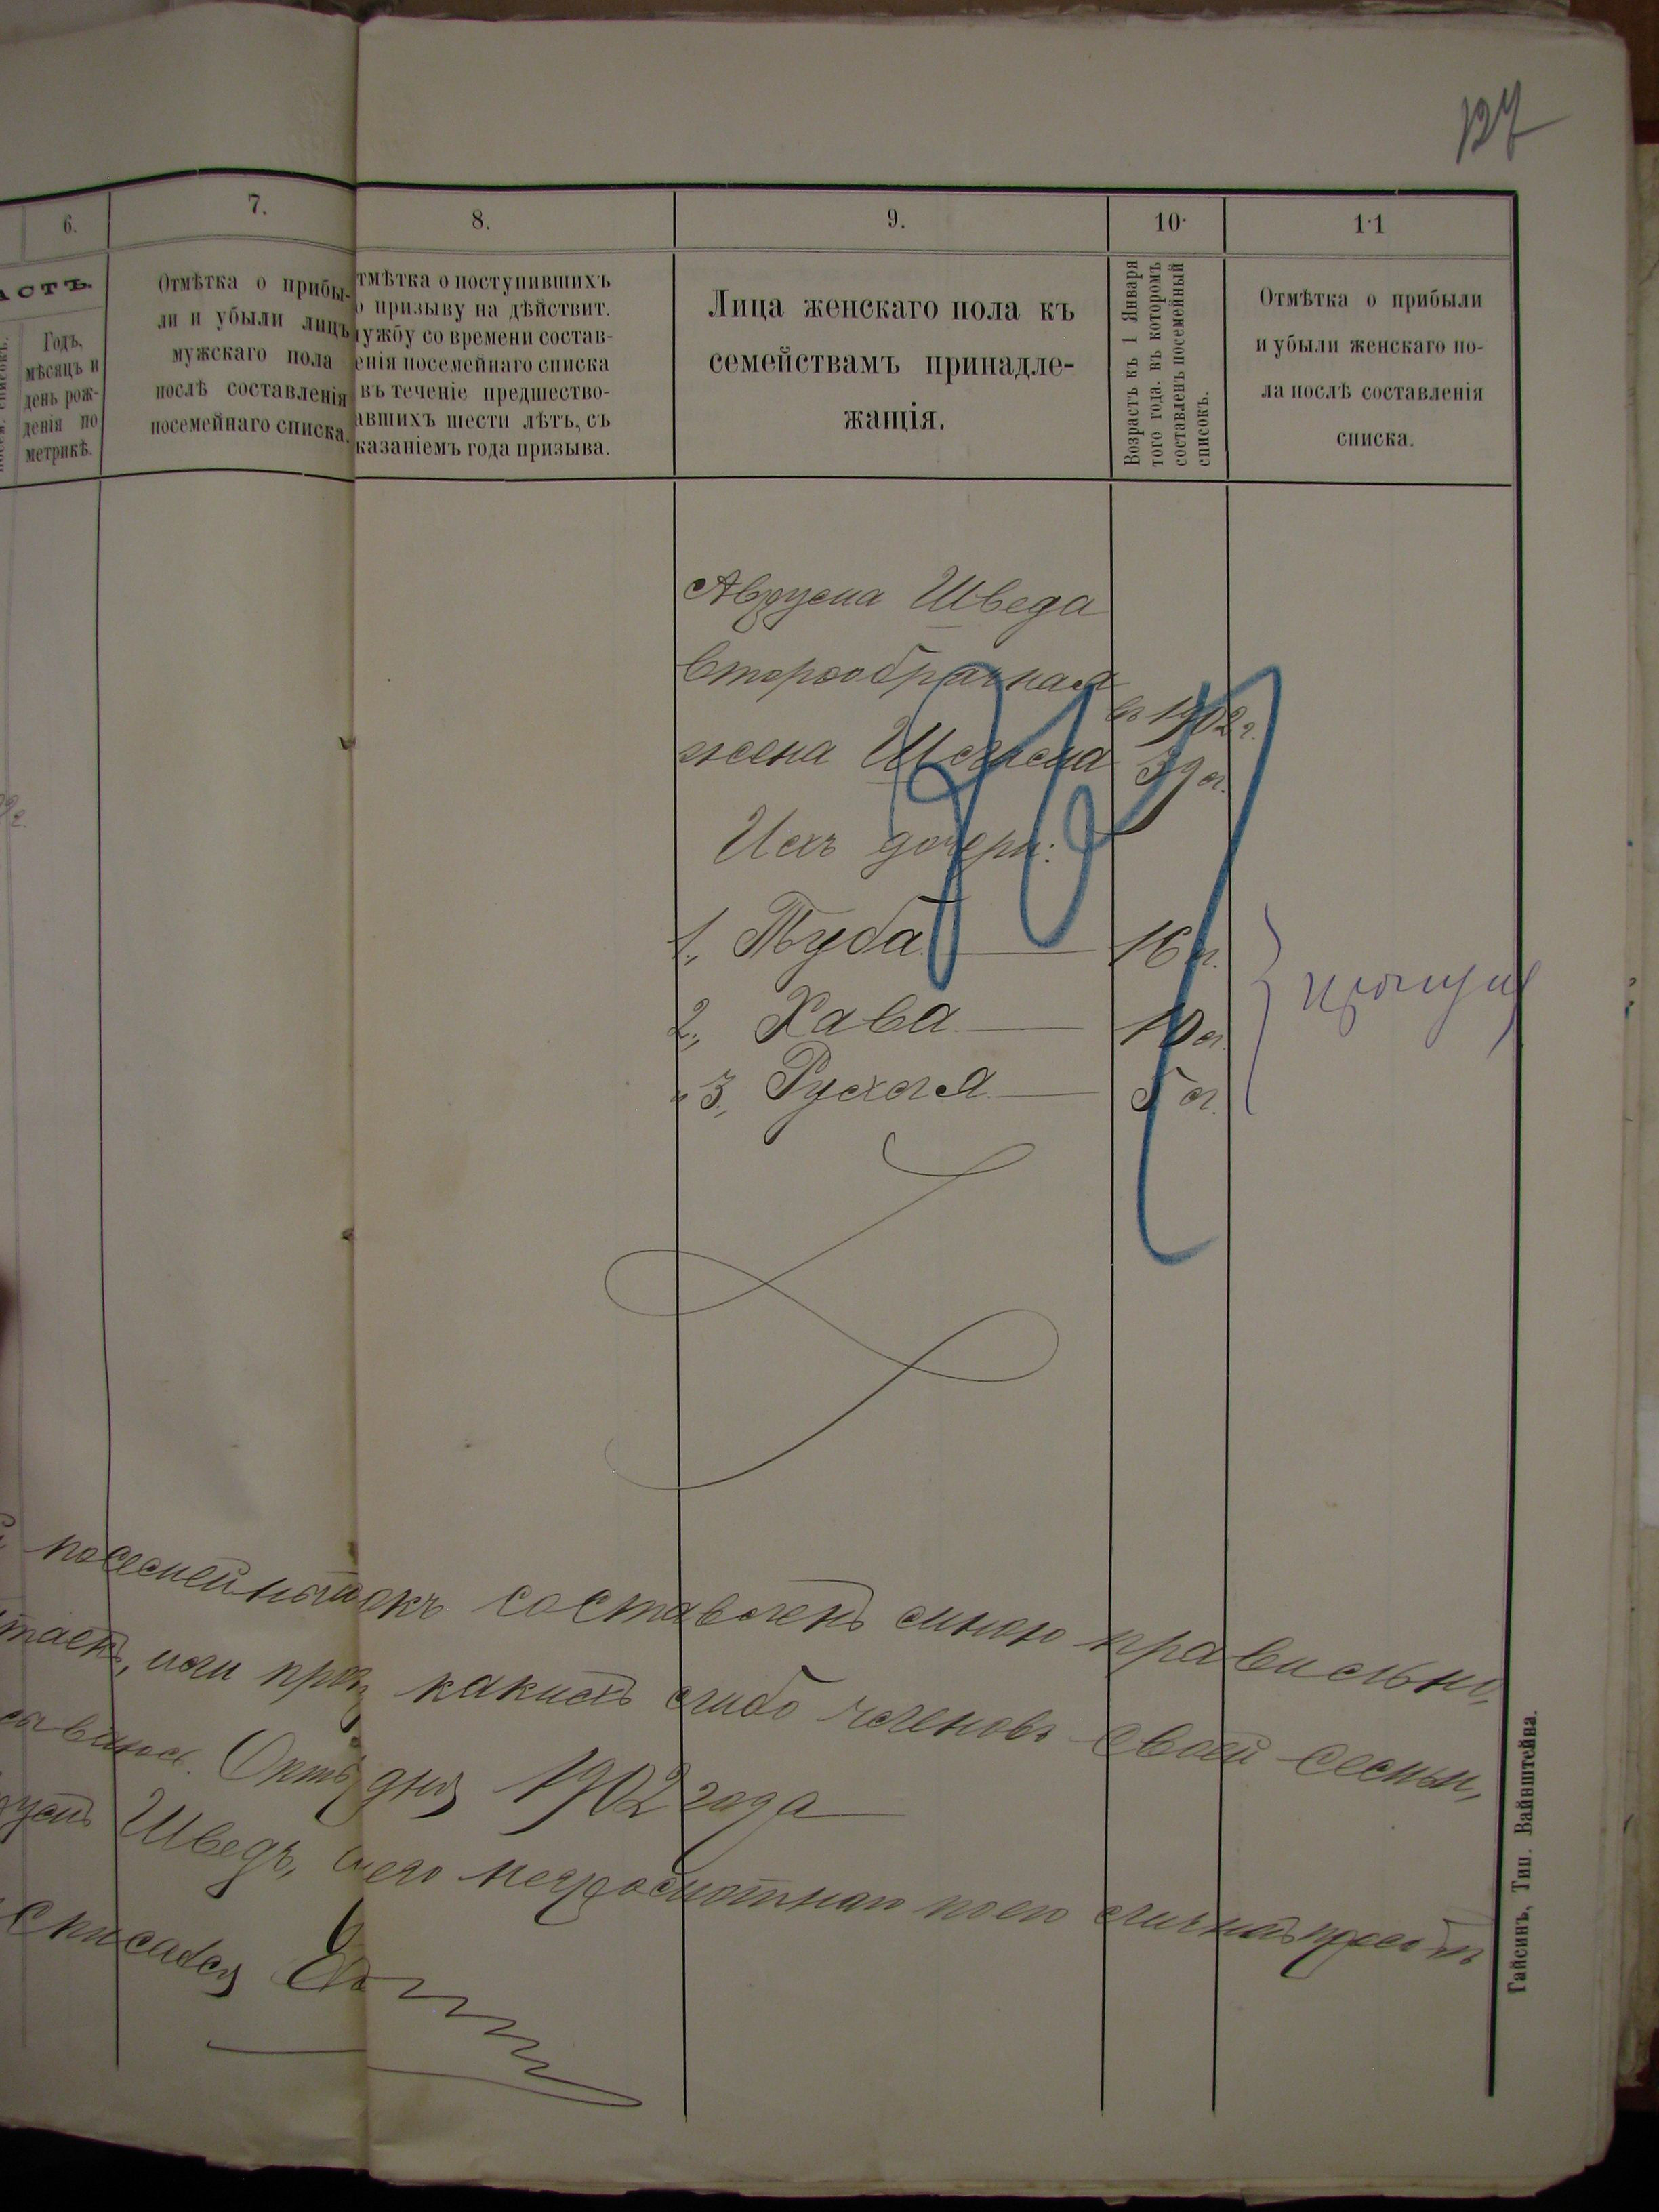 127
6.
7.
8.
9.
10.
11
АСТЬ.
Годъ,
мѣсяцъ и
день рож-
денія по
метрикѣ.
Отмѣтка о прибы-
ли и убыли лицъ
мужскаго пола
послѣ составленія
посемейнаго списка.
тмѣтка о поступившихъ
о призыву на дѣйствит.
ужбу со времени состав-
енія посемейнаго списка
въ теченіе предшество-
авшихъ шести лѣтъ, съ
казаніемъ года призыва.
Лица женскаго пола къ
семействамъ принадле-
жащія.
Возрастъ къ 1 Января
того года, въ которомъ
составленъ посемейный
списокъ.
Отмѣтка о прибыли
и убыли женскаго по-
ла послѣ составленія
списка.
Шведа
второбрачная
въ 1902 г.
жена 39 л.
Ихъ дочери:
1., Туба 16 л.
2., Хава 10 л.
3., Рухля 5 л.
посемейный окъ составленъ мною правильно,
таенъ, или какихъ либо членовъ своей семьи,
Окт дня 1902 года
Шведъ, неграмотнаго по его личной просьбѣ
списался
Гайсинъ, Тип. Вайнштейна.